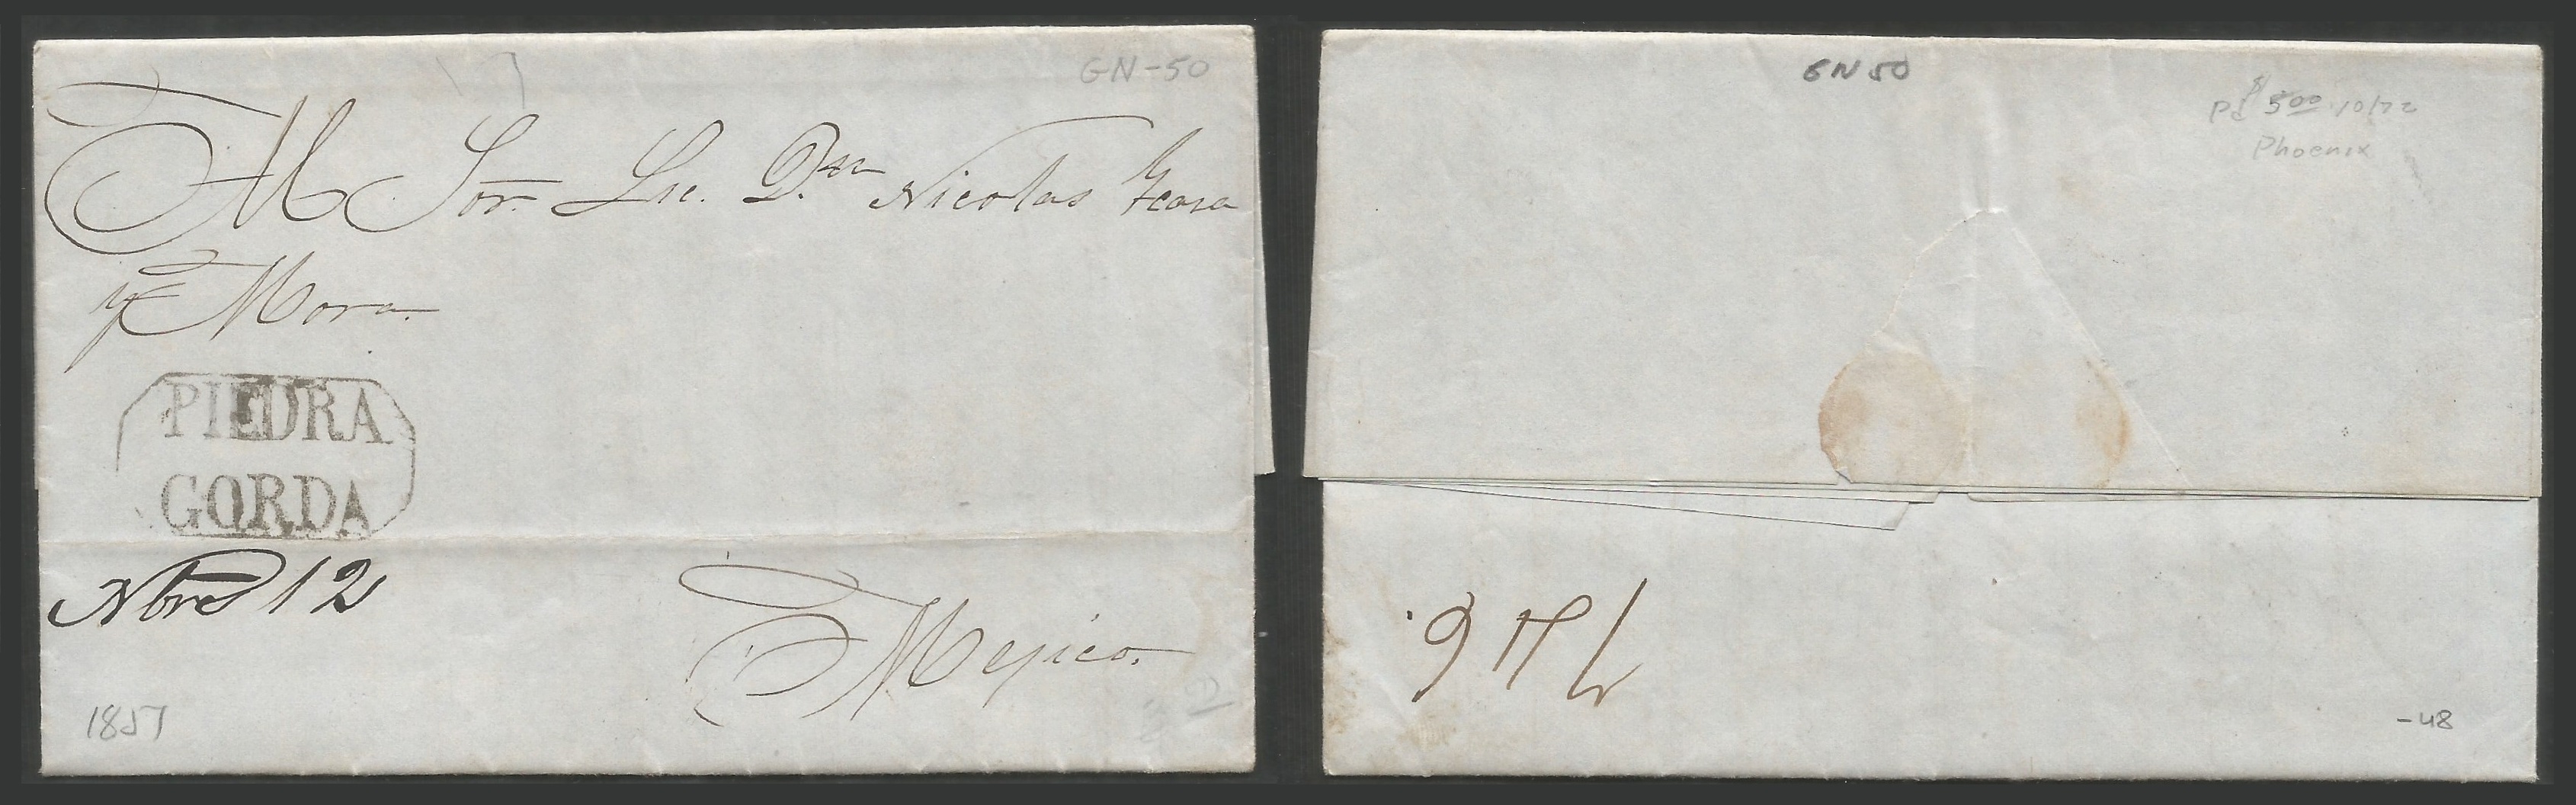 GN-50
Al Sor. Lic. D.n Nicolas
y Mora.
PIEDRA
GORDA
Nbre 12
Mejico.
1857
GN 50
Pd $ 500 10/72
Phoenix
-48